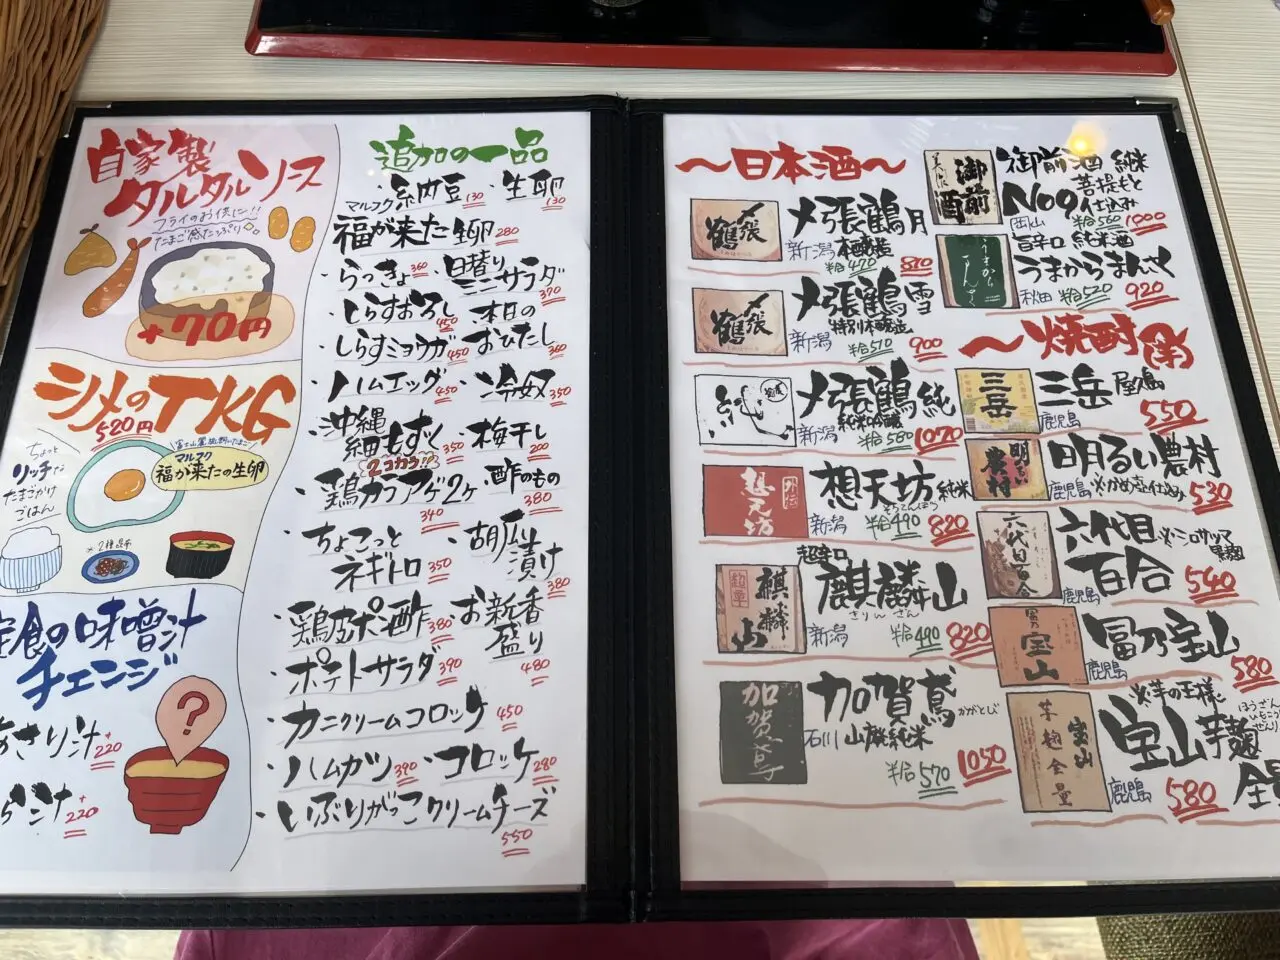 自家製
タルタルソース
フライのお供に!!
たまご感たっぷり
+70円
シメのTKG
520円
ちょっと
リッチな
たまごかけ
ごはん
マルフク
福が来たの生卵
定食の味噌汁
チェンジ
?
あさり汁 +220
汁 +220
追加の一品
・納豆 130
・生卵 130
マルフク
福が来た生卵 280
・らっきょ 360
・日替り
ミニサラダ 370
・しらすおろし 450
・本日の
おひたし 300
・しらすミョウガ 450
・ハムエッグ 450
・冷奴 350
・沖縄
細もずく 350
・梅干し 200
2コカラ!?
・鶏カラアゲ2ヶ 340
・酢のもの 380
・ちょこっと
ネギトロ 350
・胡瓜
漬け 380
・鶏皮ポン酢 380
・お新香
盛り 480
・ポテトサラダ 390
・カニクリームコロッケ 450
・ハムカツ 390
・コロッケ 280
・いぶりがっこクリームチーズ 550
〜日本酒〜
〆張鶴 月
新潟 本醸造
半合470 870
〆張鶴 雪
特別本醸造
新潟 半合510 900
〆張鶴 純
純米吟醸
新潟 半合560 1070
想天坊 純米
そうてんぼう
新潟 半合490 820
超辛口
麒麟山
きりんざん
新潟 半合490 820
加賀鳶 かがとび
石川 山廃純米
半合570 1050
御前酒 純米
菩提もと
No9 仕込み
岡山 半合560 1000
旨辛口 純米酒
うまからまんさく
秋田 半合520 920
〜焼酎(芋)
三岳 屋久島
鹿児島 550
明るい農村
鹿児島 かめ壺仕込み 530
六代目
百合
鹿児島 540
冨乃宝山
鹿児島 580
芋の王様
宝山芋麹
全量
鹿児島 580